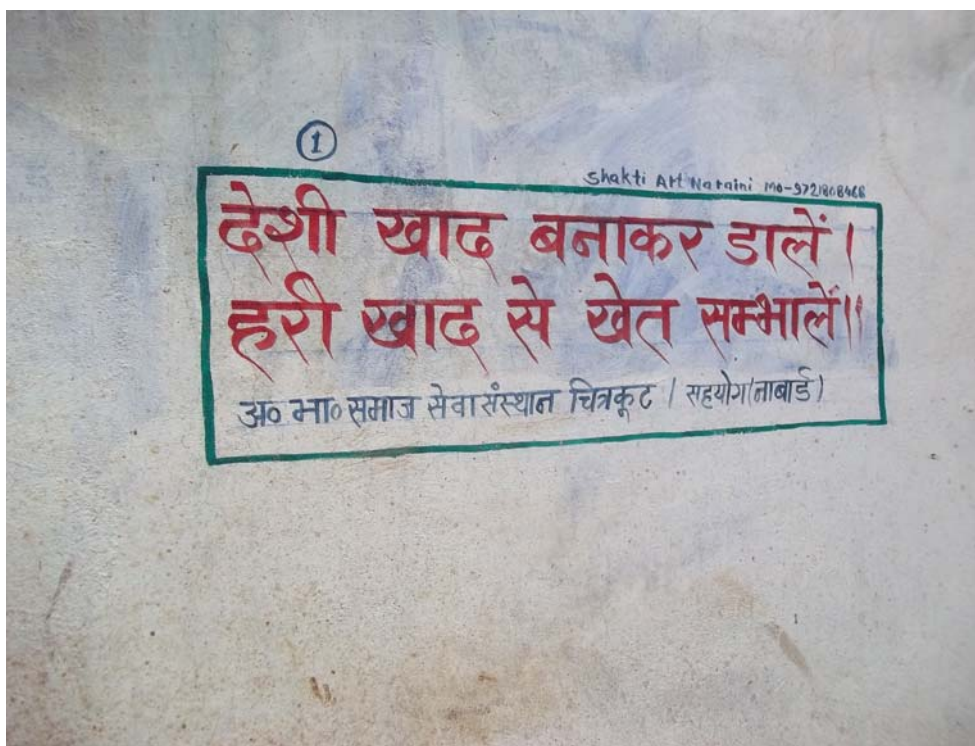 ①
Shakti Art Naraini Mo-9721808466
देशी खाद बनाकर डालें।
हरी खाद से खेत सम्भालें॥
अ० भा० समाज सेवा संस्थान चित्रकूट / सहयोग (नाबार्ड)